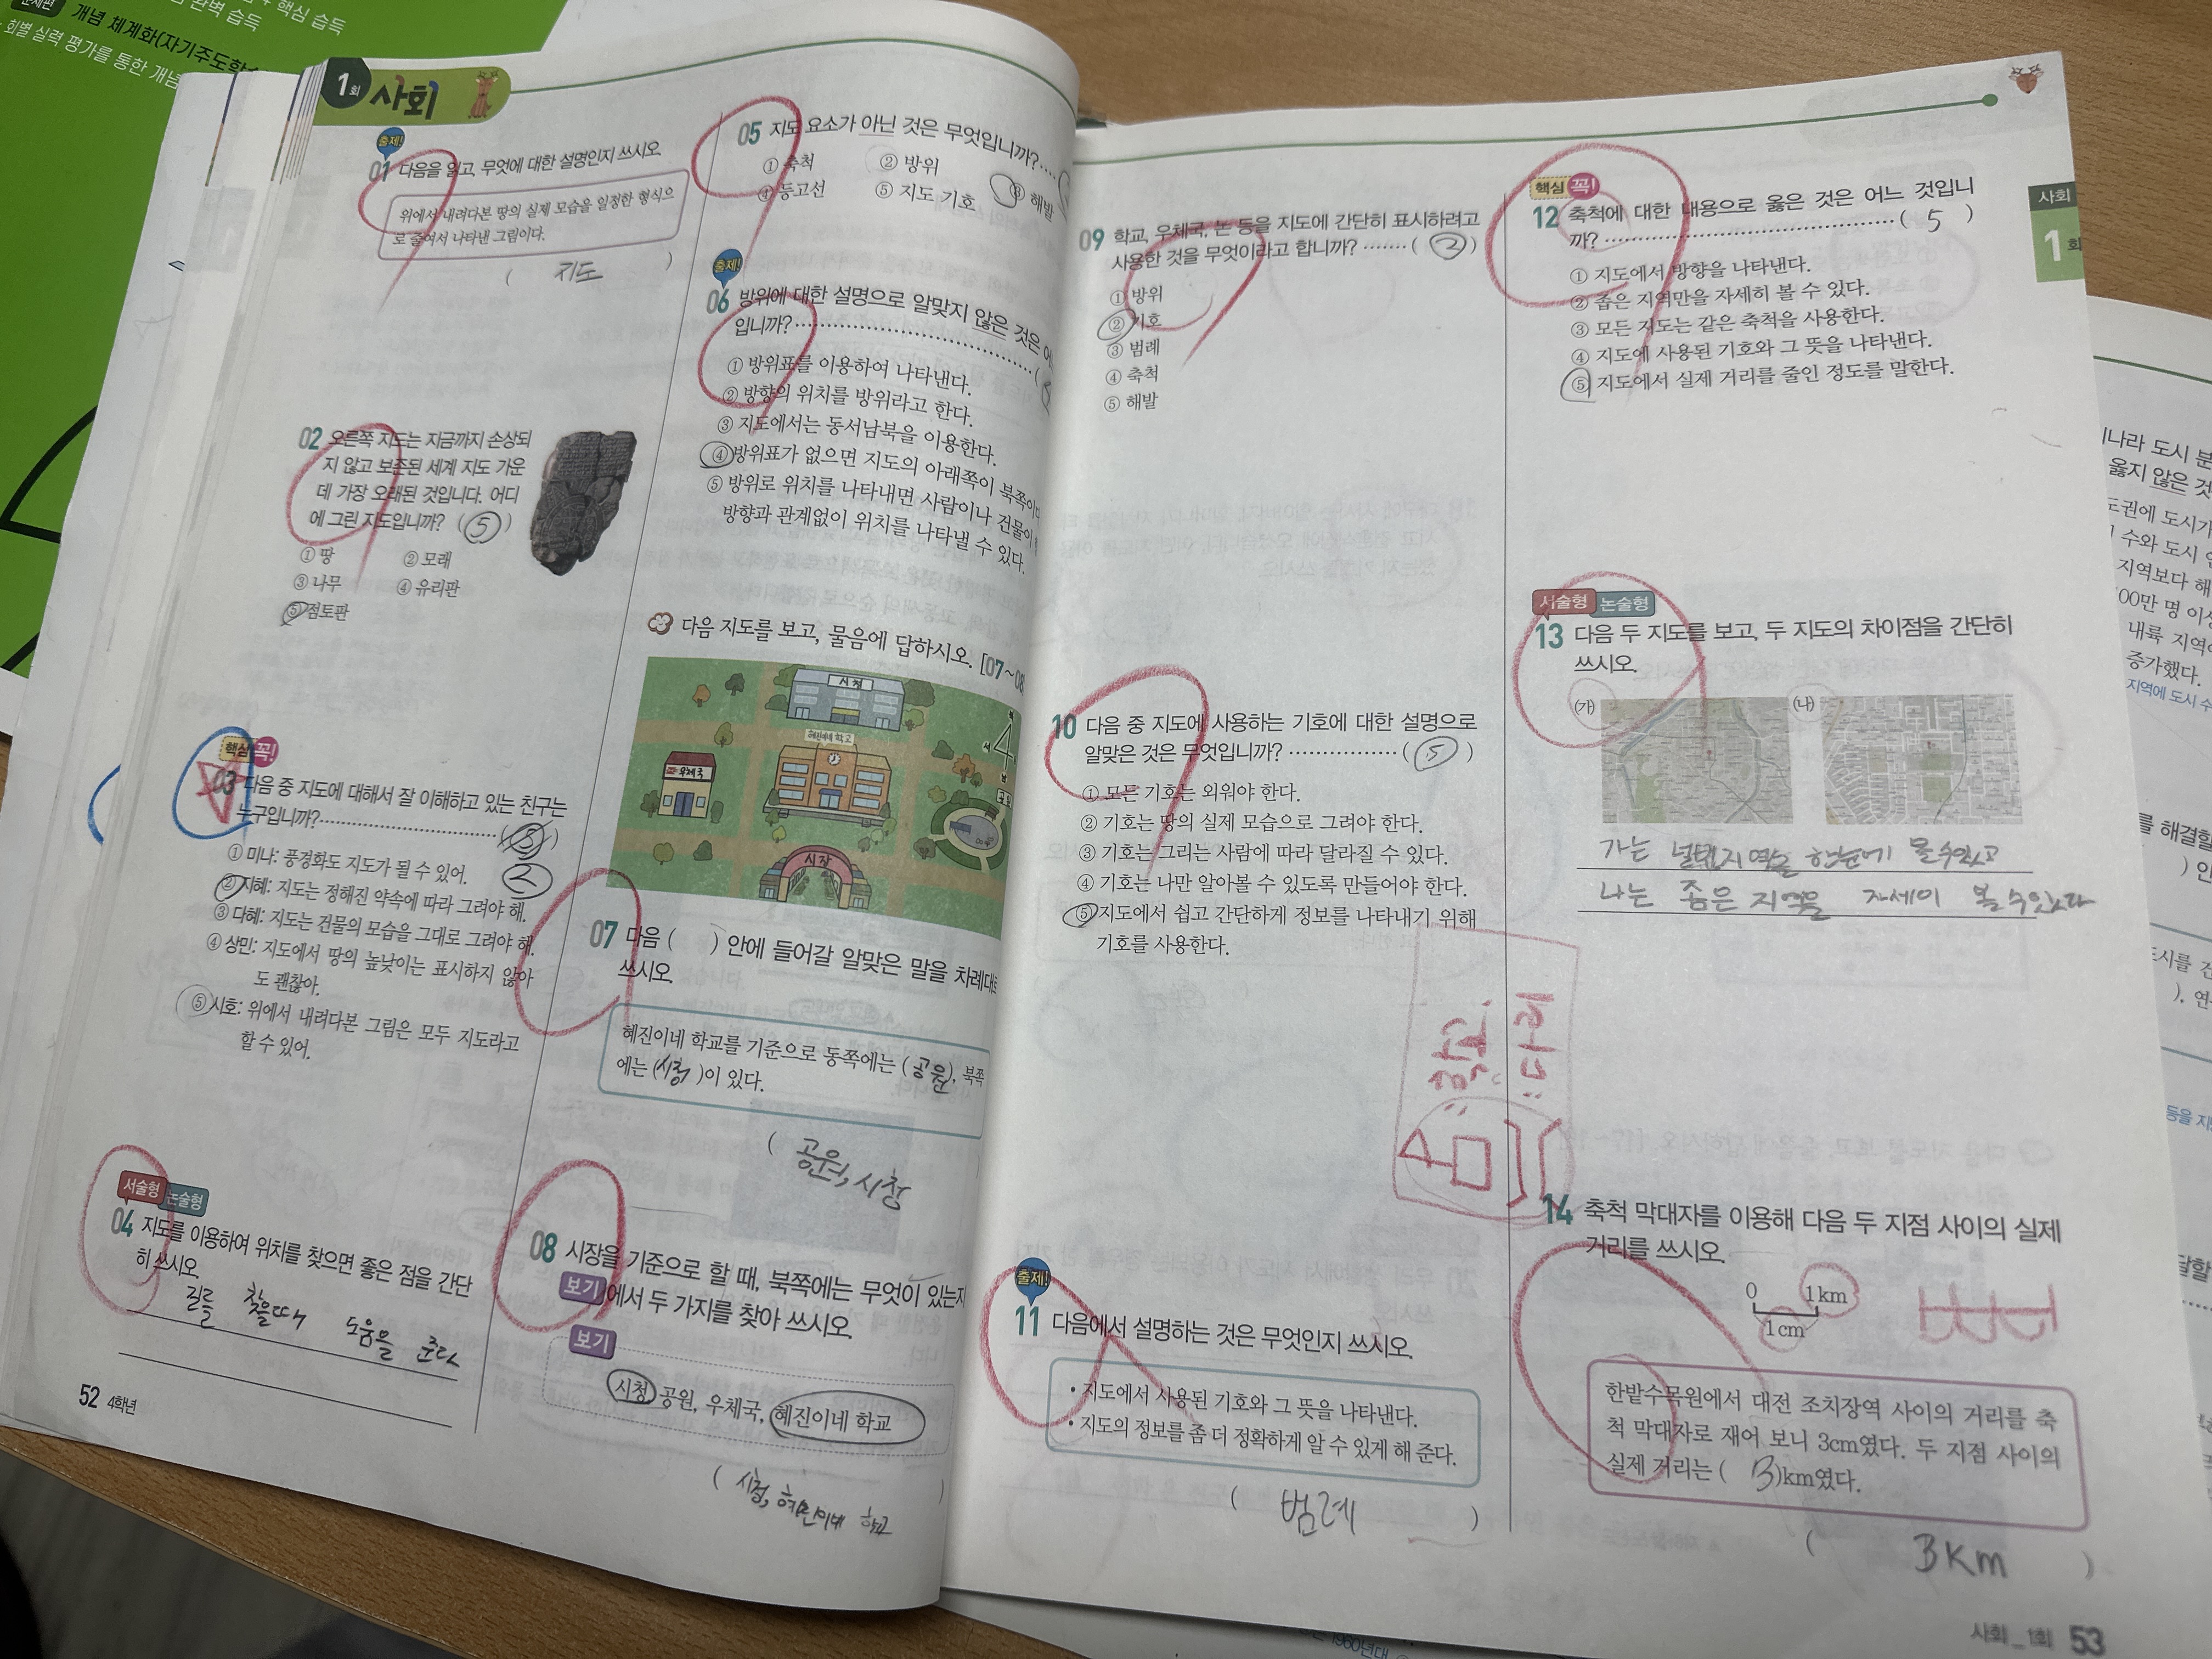 핵심 습득
완벽 습득
개념 체계화(자기주도학습
회별 실력 평가를 통한 개념
1회 사회
출제!
01 다음을 읽고, 무엇에 대한 설명인지 쓰시오.
위에서 내려다본 땅의 실제 모습을 일정한 형식으
로 줄여서 나타낸 그림이다.
( 지도 )
02 오른쪽 지도는 지금까지 손상되
지 않고 보존된 세계 지도 가운
데 가장 오래된 것입니다. 어디
에 그린 지도입니까? ( 5 )
① 땅 ② 모래
③ 나무 ④ 유리판
⑤ 점토판
핵심 꼭!
03 다음 중 지도에 대해서 잘 이해하고 있는 친구는
누구입니까? ( 5 )
2
① 미나: 풍경화도 지도가 될 수 있어.
② 지혜: 지도는 정해진 약속에 따라 그려야 해.
③ 다혜: 지도는 건물의 모습을 그대로 그려야 해.
④ 상민: 지도에서 땅의 높낮이는 표시하지 않아
도 괜찮아.
⑤ 시호: 위에서 내려다본 그림은 모두 지도라고
할 수 있어.
서술형 논술형
04 지도를 이용하여 위치를 찾으면 좋은 점을 간단
히 쓰시오.
길를 찾을때 도움을 준다
52 4학년
05 지도 요소가 아닌 것은 무엇입니까?
① 축척 ② 방위 ③ 해발
④ 등고선 ⑤ 지도 기호
출제!
06 방위에 대한 설명으로 알맞지 않은 것은 어
입니까? (
① 방위표를 이용하여 나타낸다.
② 방향의 위치를 방위라고 한다.
③ 지도에서는 동서남북을 이용한다.
④ 방위표가 없으면 지도의 아래쪽이 북쪽이다
⑤ 방위로 위치를 나타내면 사람이나 건물이
방향과 관계없이 위치를 나타낼 수 있다.
다음 지도를 보고, 물음에 답하시오. [07~08
시청
혜진이네 학교
우체국
서
시장
07 다음 ( ) 안에 들어갈 알맞은 말을 차례대로
쓰시오.
혜진이네 학교를 기준으로 동쪽에는 ( 공원 ), 북쪽
에는 ( 시청 )이 있다.
( 공원, 시청
08 시장을 기준으로 할 때, 북쪽에는 무엇이 있는지
보기 에서 두 가지를 찾아 쓰시오.
보기
시청, 공원, 우체국, 혜진이네 학교
( 시청, 혜진이네 학교 )
09 학교, 우체국, 논 등을 지도에 간단히 표시하려고
사용한 것을 무엇이라고 합니까? ( 2 )
① 방위
② 기호
③ 범례
④ 축척
⑤ 해발
10 다음 중 지도에 사용하는 기호에 대한 설명으로
알맞은 것은 무엇입니까? ( 5 )
① 모든 기호는 외워야 한다.
② 기호는 땅의 실제 모습으로 그려야 한다.
③ 기호는 그리는 사람에 따라 달라질 수 있다.
④ 기호는 나만 알아볼 수 있도록 만들어야 한다.
⑤ 지도에서 쉽고 간단하게 정보를 나타내기 위해
기호를 사용한다.
: 학교
: 다리
출제!
11 다음에서 설명하는 것은 무엇인지 쓰시오.
• 지도에서 사용된 기호와 그 뜻을 나타낸다.
• 지도의 정보를 좀 더 정확하게 알 수 있게 해 준다.
( 범례 )
핵심 꼭!
12 축척에 대한 내용으로 옳은 것은 어느 것입니
까? ( 5 )
① 지도에서 방향을 나타낸다.
② 좁은 지역만을 자세히 볼 수 있다.
③ 모든 지도는 같은 축척을 사용한다.
④ 지도에 사용된 기호와 그 뜻을 나타낸다.
⑤ 지도에서 실제 거리를 줄인 정도를 말한다.
서술형 논술형
13 다음 두 지도를 보고, 두 지도의 차이점을 간단히
쓰시오.
(가) (나)
가는 넓은 지역을 한눈에 볼수있고
나는 좁은 지역을 자세이 볼수있다
14 축척 막대자를 이용해 다음 두 지점 사이의 실제
거리를 쓰시오.
0 1km
1cm
한밭수목원에서 대전 조치장역 사이의 거리를 축
척 막대자로 재어 보니 3cm였다. 두 지점 사이의
실제 거리는 ( 3 )km였다.
( 3Km )
사회_1회 53
사회
1회
나라 도시 분
옳지 않은 것
도권에 도시가
수와 도시 인
지역보다 해
00만 명 이상
내륙 지역
증가했다.
지역에 도시 수
를 해결할
) 안
도시를 건
). 연
등을 지
달할
1960년대